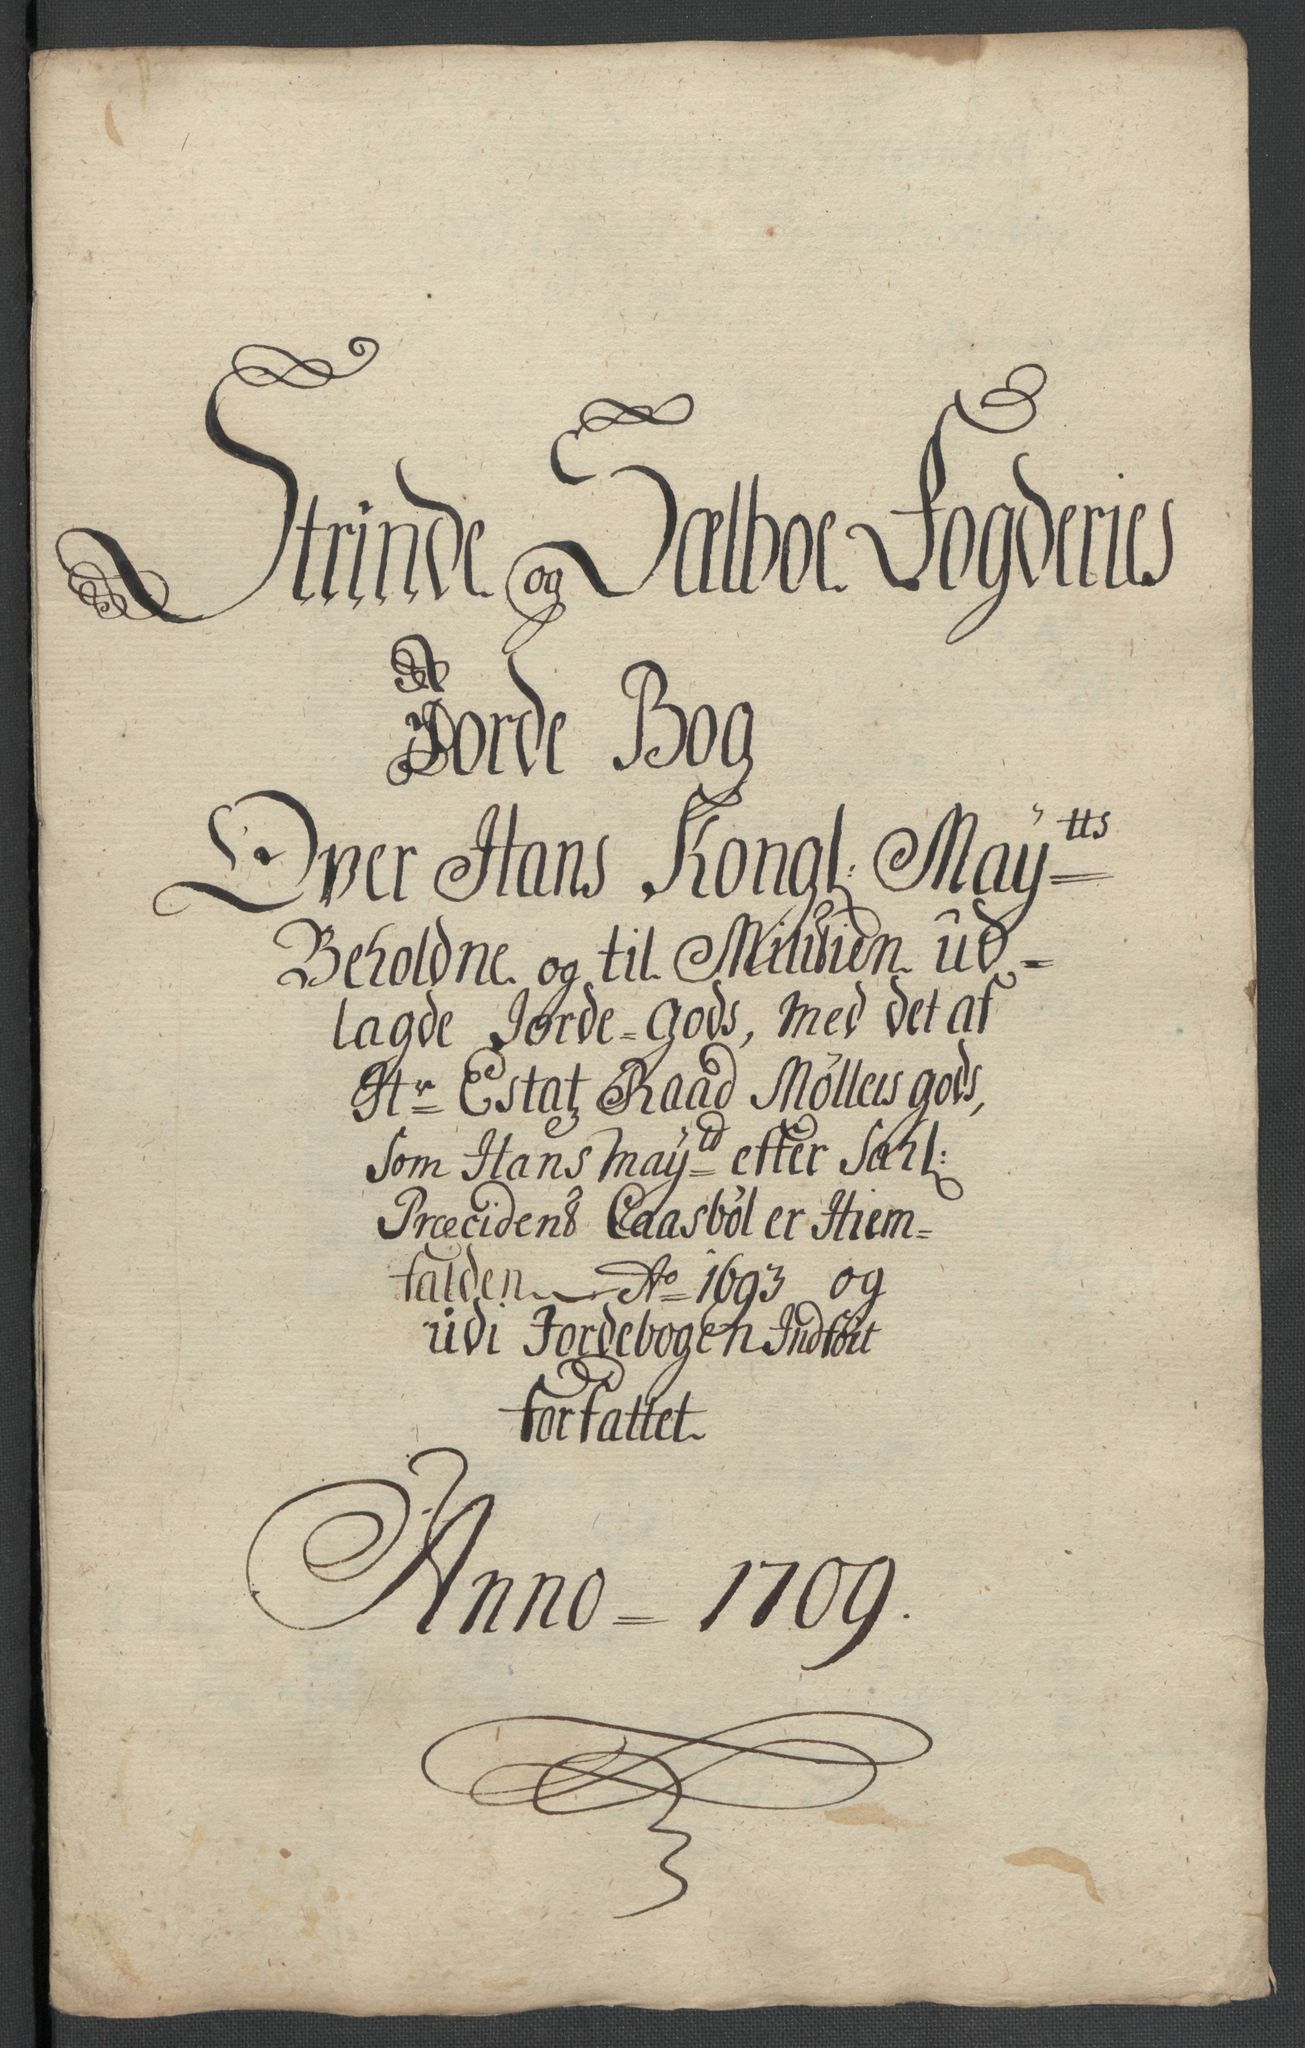 Strinde og Sælboe Fogderies
Jorde Bog
Over Hans Kongl: Maÿtts
Beholdne og til Militien ud-
lagde Jorde-Gods, med det af
Hr Estatz Raad Möllers gods,
som Hans Maÿtd efter Sahl:
Præcident Caasböl er Hiem-
falden Ao 1693 og
udi Jordebogen Indfört
forfattet
Anno 1709.